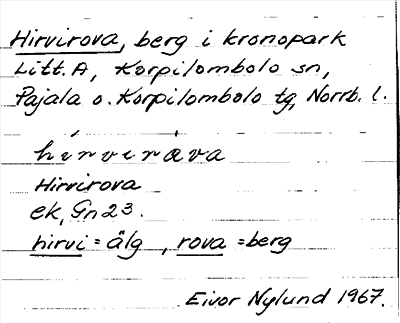 Hirvirova, berg i kronopark
Litt. A, Korpilombolo sn,
Pajala o. Korpilombolo tg, Norrb. l.
hìrviràva
Hirvirova
ek, Gn 23.
hirvi = älg, rova = berg
Eivor Nylund 1967.